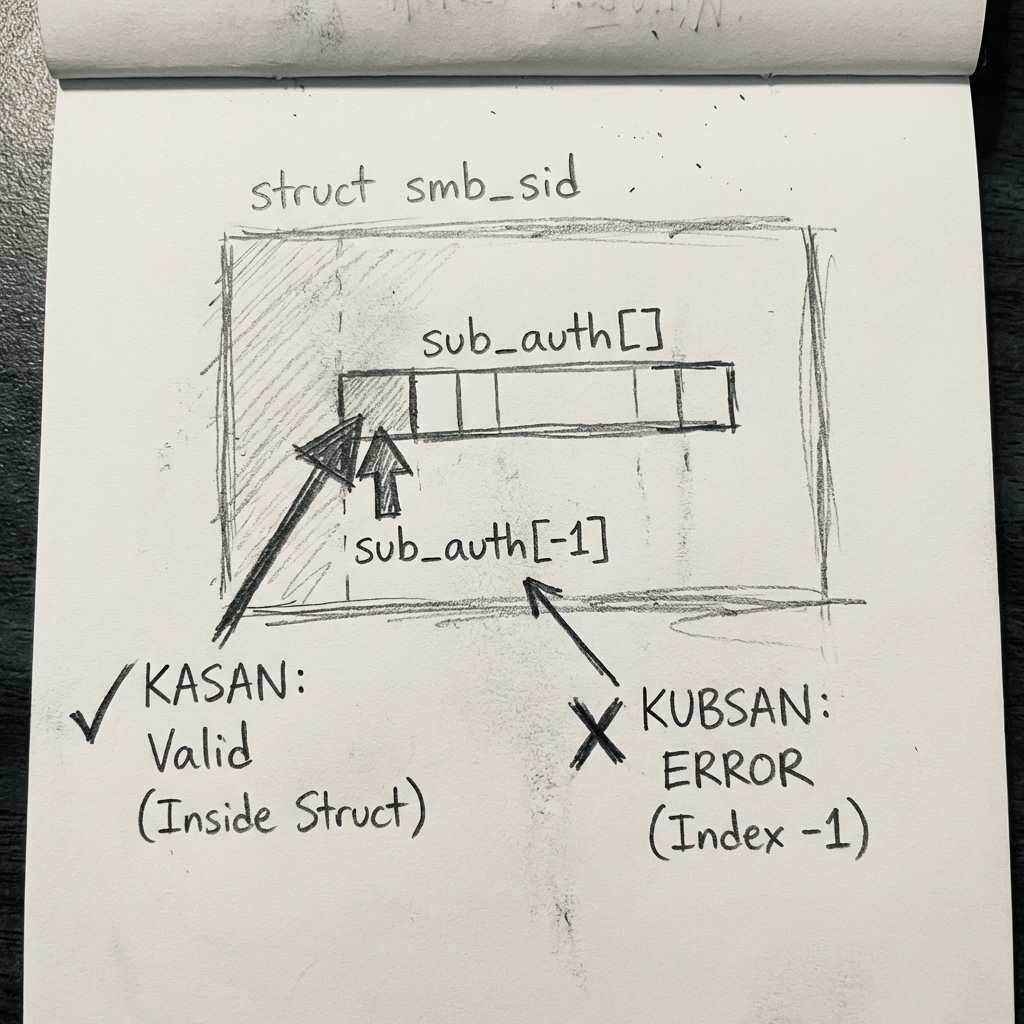 struct smb_sid
sub_auth[]
sub_auth[-1]
KASAN:
Valid
(Inside Struct)
KUBSAN:
ERROR
(Index -1)